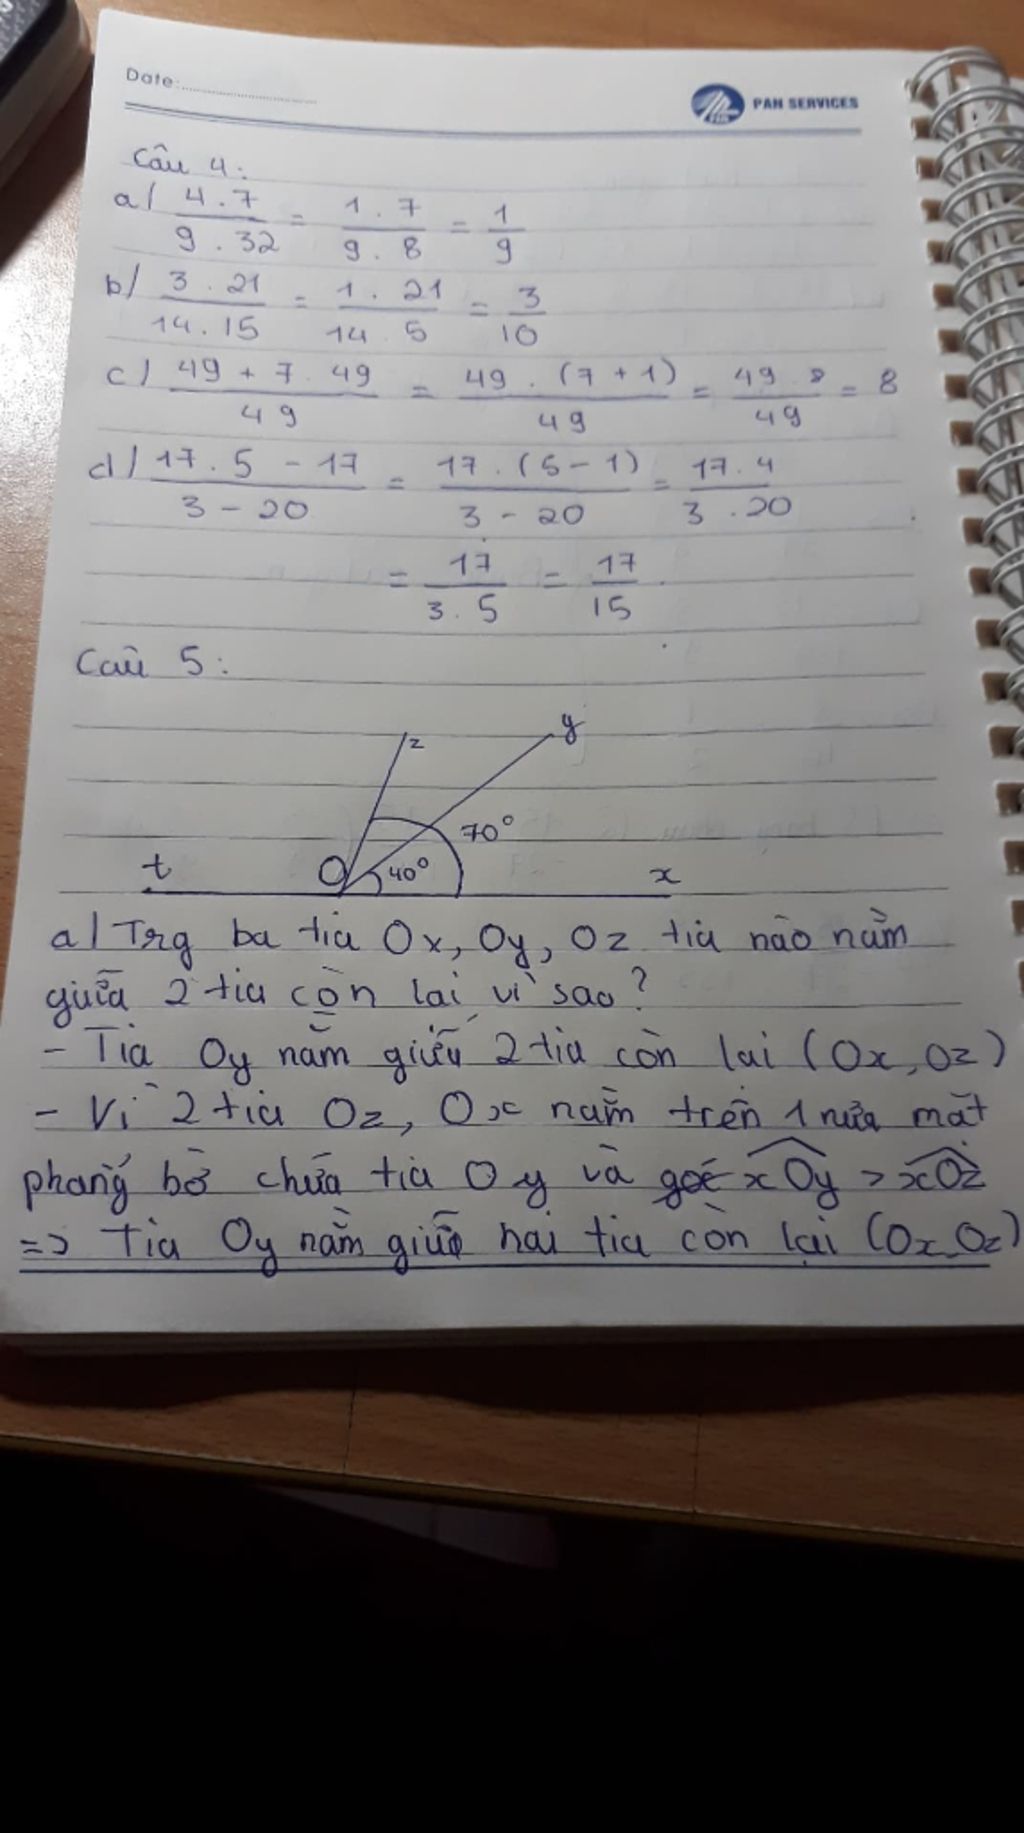 Date:
PAN SERVICES
Câu 4:
a/ 4.7 / 9.32 = 1.7 / 9.8 = 1/9
b/ 3.21 / 14.15 = 1.21 / 14.5 = 3/10
c/ 49 + 7.49 / 49 = 49.(7+1) / 49 = 49.8 / 49 = 8
d/ 17.5 - 17 / 3 - 20 = 17.(5-1) / 3 - 20 = 17.4 / 3.20
= 17 / 3.5 = 17/15
Câu 5:
z
y
70°
t
O
40°
x
a/ Trg ba tia Ox, Oy, Oz tia nào nằm
giữa 2 tia còn lại vì sao?
- Tia Oy nằm giữa 2 tia còn lại (Ox, Oz)
- Vì 2 tia Oz, Ox nằm trên 1 nửa mặt
phẳng bờ chứa tia Oy và góc xOy > xOz
=> Tia Oy nằm giữa hai tia còn lại (Ox, Oz)